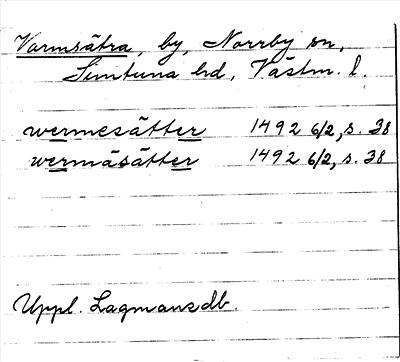 Varmsätra, by, Norrby sn,
Simtuna hd, Västm. l.
wermesätter 1492 6/2, s. 38
wermäsätter 1492 6/2, s. 38
Uppl. Lagmansdb.